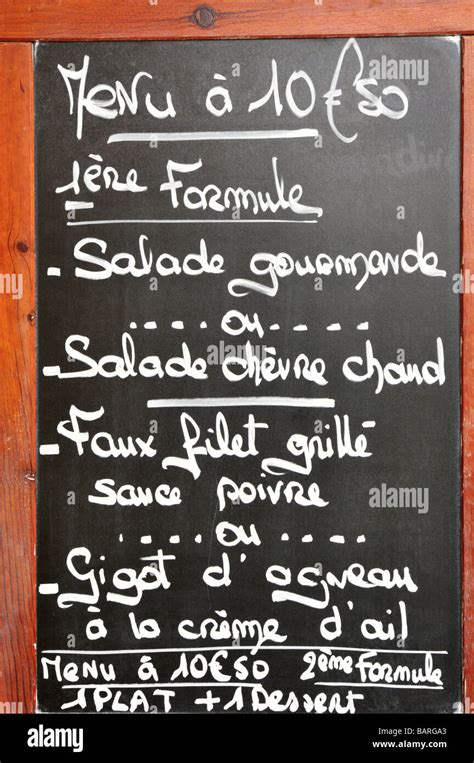 Menu à 10€50
1ère Formule
- Salade gourmande
.... ou ....
- Salade chèvre chaud
- Faux filet grillé
sauce poivre
.... ou ....
- Gigot d'agneau
à la crème d'ail
Menu à 10€50 2ème Formule
1 Plat + 1 Dessert
alamy
Image ID: BARGA3
www.alamy.com